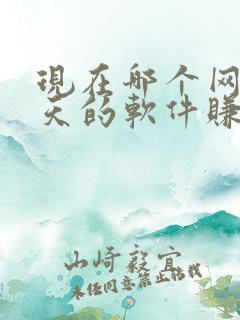 現在哪个网
天的軟件賺
山崎毅宜
未经同意禁止转载